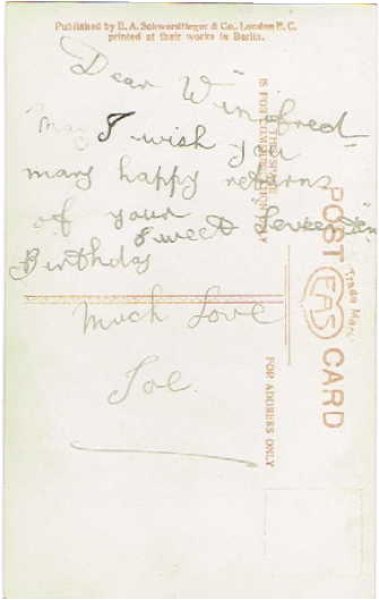 Published by E. A. Schwerdtfeger & Co., London E. C.
printed at their works in Berlin.
Dear Winifred
May I wish you
many happy returns
of your
Sweet "Seventeen"
Birthday
Much Love
Joe.
THIS SPACE
IS FOR COMMUNICATION ONLY
POST CARD
EAS
Trade Mark
FOR ADDRESS ONLY